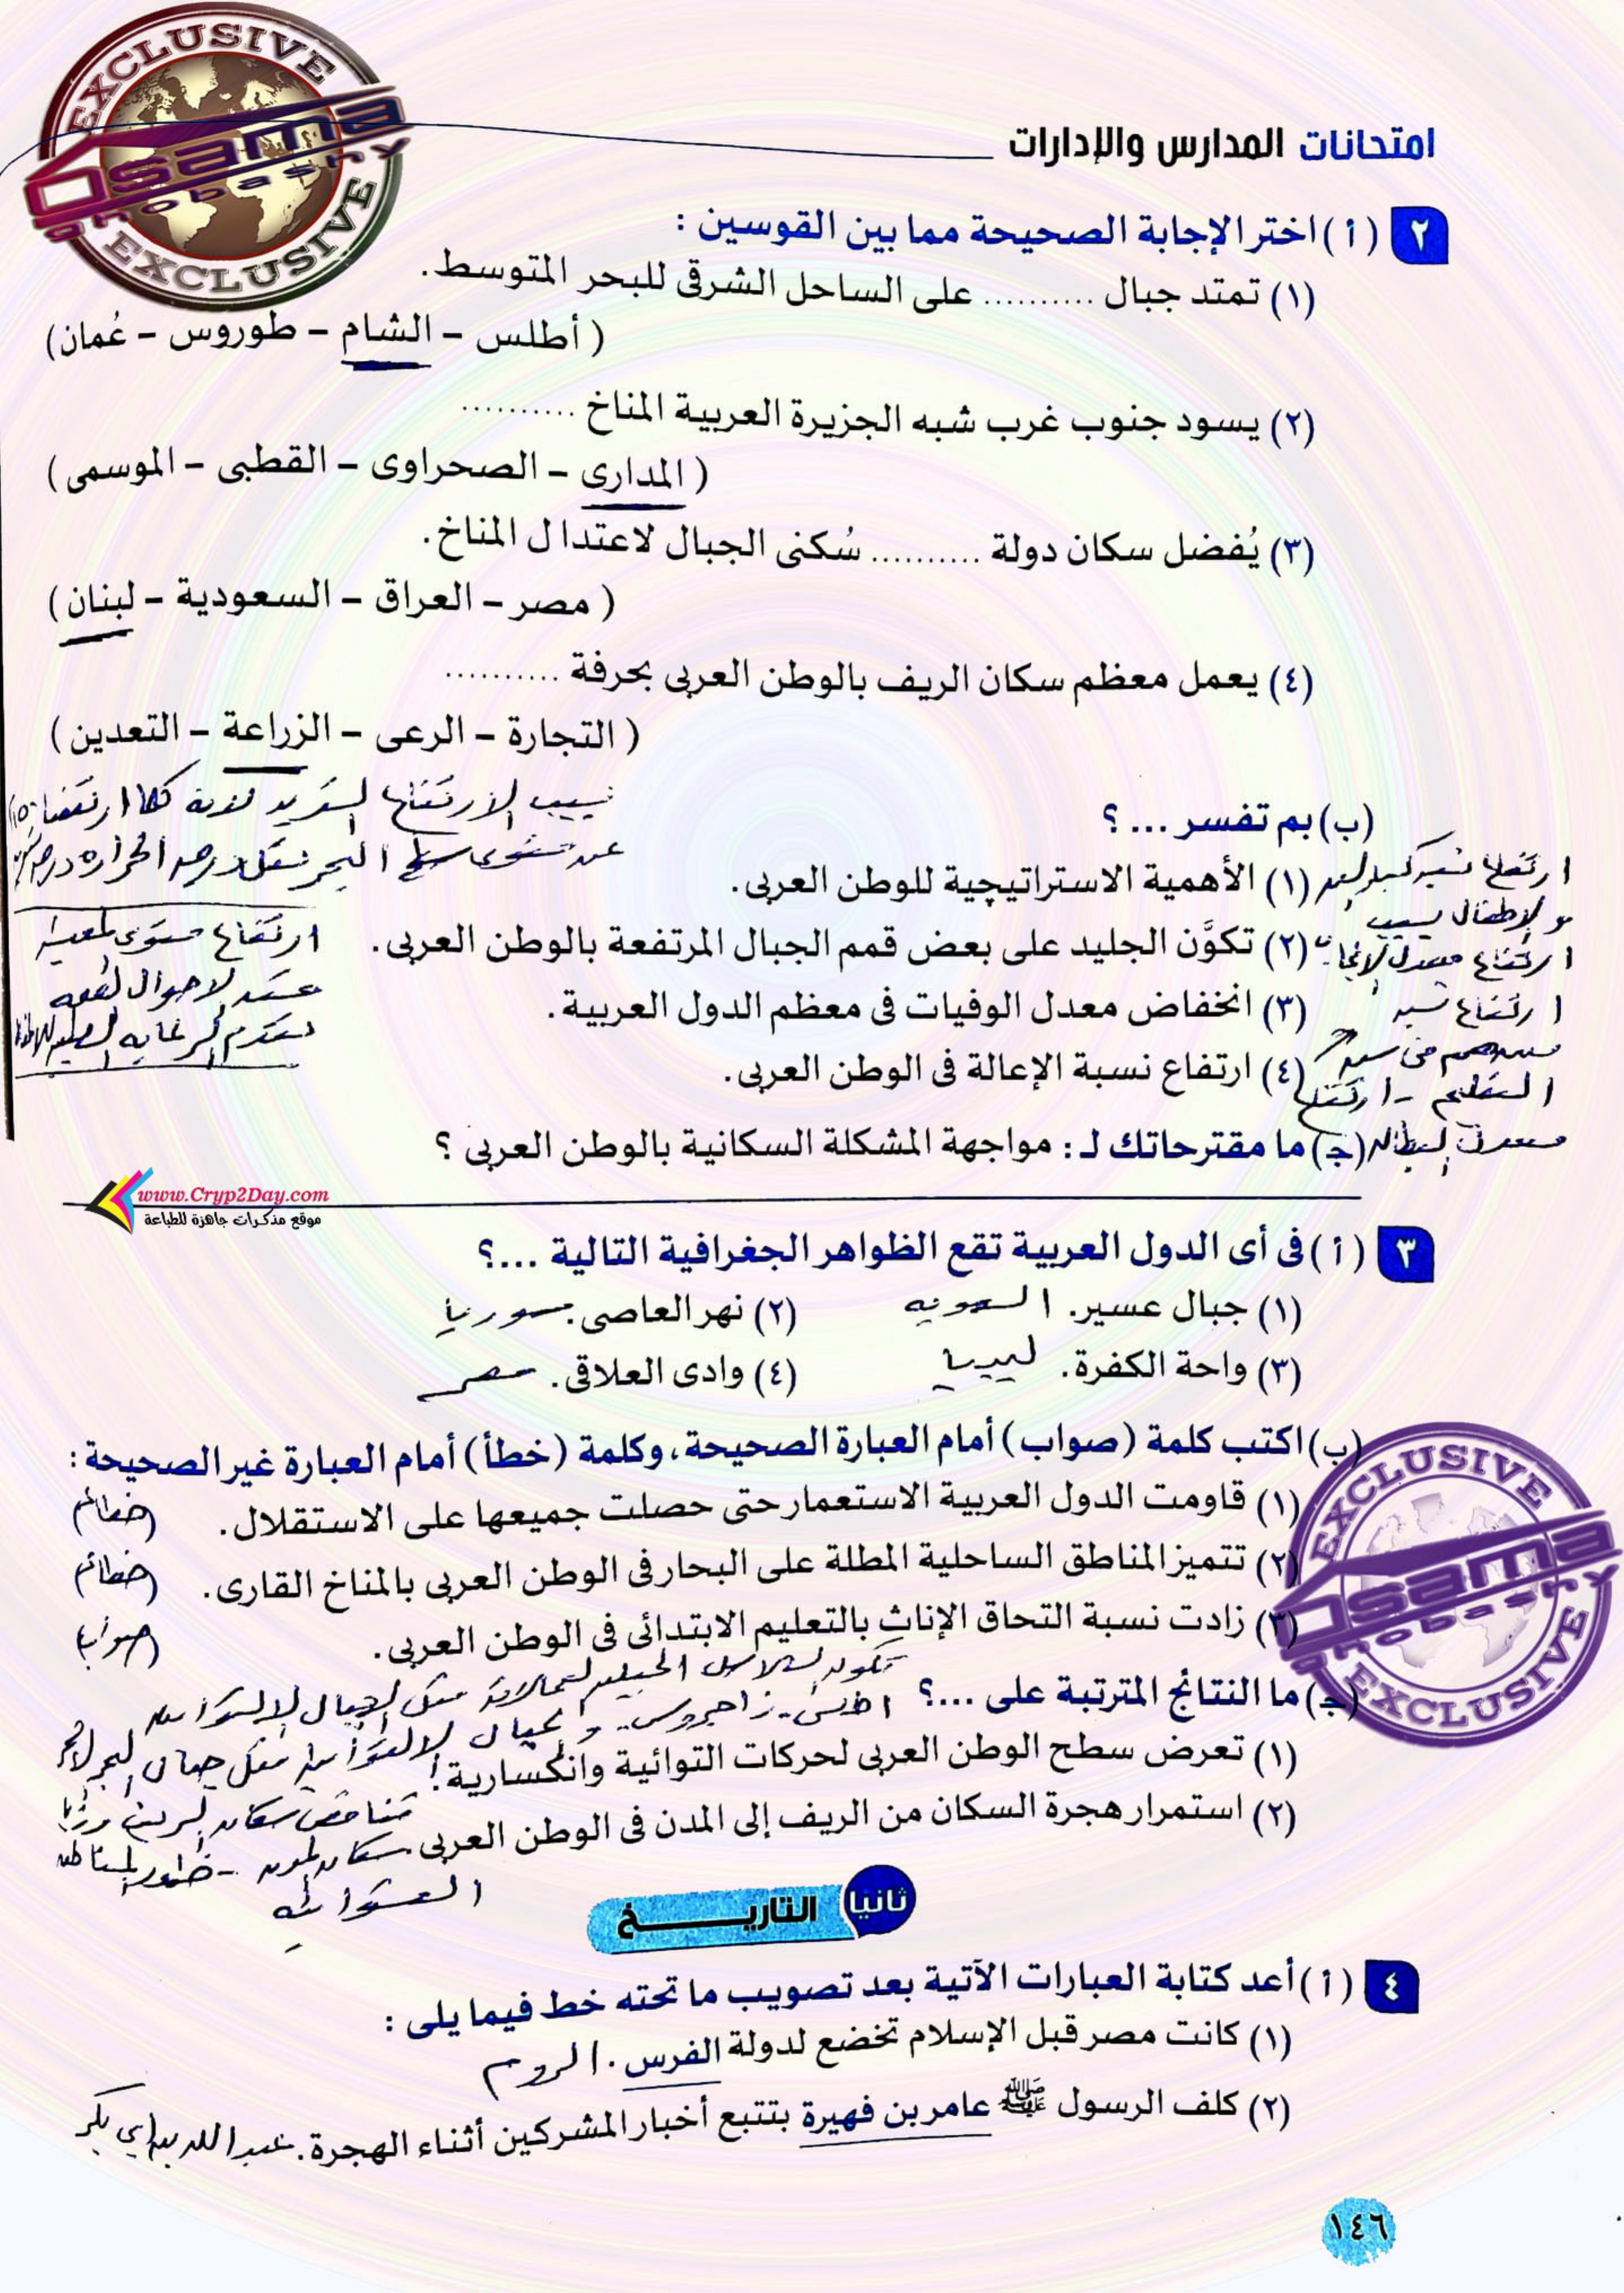 EXCLUSIVE
Osama
ghobashy
EXCLUSIVE
امتحانات المدارس والإدارات
٢ (أ) اختر الإجابة الصحيحة مما بين القوسين :
(١) تمتد جبال .......... على الساحل الشرقى للبحر المتوسط.
( أطلس – الشام – طوروس – عُمان)
(٢) يسود جنوب غرب شبه الجزيرة العربية المناخ ..........
( المدارى – الصحراوى – القطبى – الموسمى )
(٣) يُفضل سكان دولة .......... سُكنى الجبال لاعتدال المناخ.
( مصر – العراق – السعودية – لبنان )
(٤) يعمل معظم سكان الريف بالوطن العربى بحرفة ..........
( التجارة – الرعى – الزراعة – التعدين )
بسبب الارتفاع الشديد لانه كلما ارتفعنا ١٥٠
عن مستوى سطح البحر تقل درجه الحراره درجه
(ب) بم تفسر ... ؟
(١) الأهمية الاستراتيچية للوطن العربى.
ارتفاع نسبه كبار السن
والاطفال بسبب
ارتفاع مستوى المعيشة
(٢) تكوَّن الجليد على بعض قمم الجبال المرتفعة بالوطن العربى.
ارتفاع معدل الانجاب
(٣) انخفاض معدل الوفيات فى معظم الدول العربية.
ارتفاع نسبه
تقدم الرعايه الصحيه للاطفال
(٤) ارتفاع نسبة الإعالة فى الوطن العربى.
التعليم - ارتفاع
معدل البطاله
(ج) ما مقترحاتك لـ : مواجهة المشكلة السكانية بالوطن العربى ؟
www.Cryp2Day.com
موقع مذكرات جاهزة للطباعة
٣ (أ) فى أى الدول العربية تقع الظواهر الجغرافية التالية ...؟
(١) جبال عسير. السعوديه (٢) نهر العاصى. سوريا
(٣) واحة الكفرة. ليبيا (٤) وادى العلاقى. مصر
(ب) اكتب كلمة (صواب) أمام العبارة الصحيحة، وكلمة (خطأ) أمام العبارة غير الصحيحة :
(١) قاومت الدول العربية الاستعمار حتى حصلت جميعها على الاستقلال. (خطأ)
(٢) تتميز المناطق الساحلية المطلة على البحار فى الوطن العربى بالمناخ القارى. (خطأ)
(٣) زادت نسبة التحاق الإناث بالتعليم الابتدائى فى الوطن العربى. (صواب)
EXCLUSIVE
Osama
ghobashy
EXCLUSIVE
(ج) ما النتائج المترتبة على ...؟
(١) تعرض سطح الوطن العربى لحركات التوائية وانكسارية.
(٢) استمرار هجرة السكان من الريف إلى المدن فى الوطن العربى.
تناقص سكان الريف وزيادة
سكان المدن - ظهور المناطق
العشوائيه
ثانيا التاريخ
٤ (أ) أعد كتابة العبارات الآتية بعد تصويب ما تحته خط فيما يلى :
(١) كانت مصر قبل الإسلام تخضع لدولة الفرس . الروم
(٢) كلف الرسول ﷺ عامر بن فهيرة بتتبع أخبار المشركين أثناء الهجرة. عبد الله بن ابي بكر
١٤٦